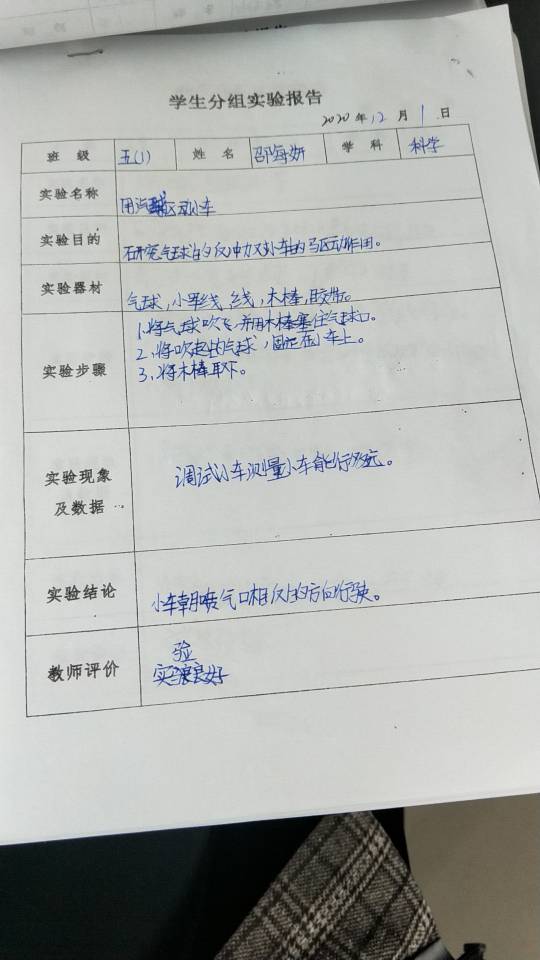 学生分组实验报告
2020年12月1日
班级 五(1) 姓名 邵海妍 学科 科学
实验名称 用汽球驱动小车
实验目的 研究气球的反冲力对小车的驱动作用。
实验器材 气球,小车,线,木棒,胶带。
实验步骤 1.将气球吹飞,并用木棒塞住气球口。
2、将吹起的气球,固定在小车上。
3、将木棒取下。
实验现象
及数据 调试小车测量小车能行多远。
实验结论 小车朝喷气口相反的方向行驶。
教师评价 实验良好